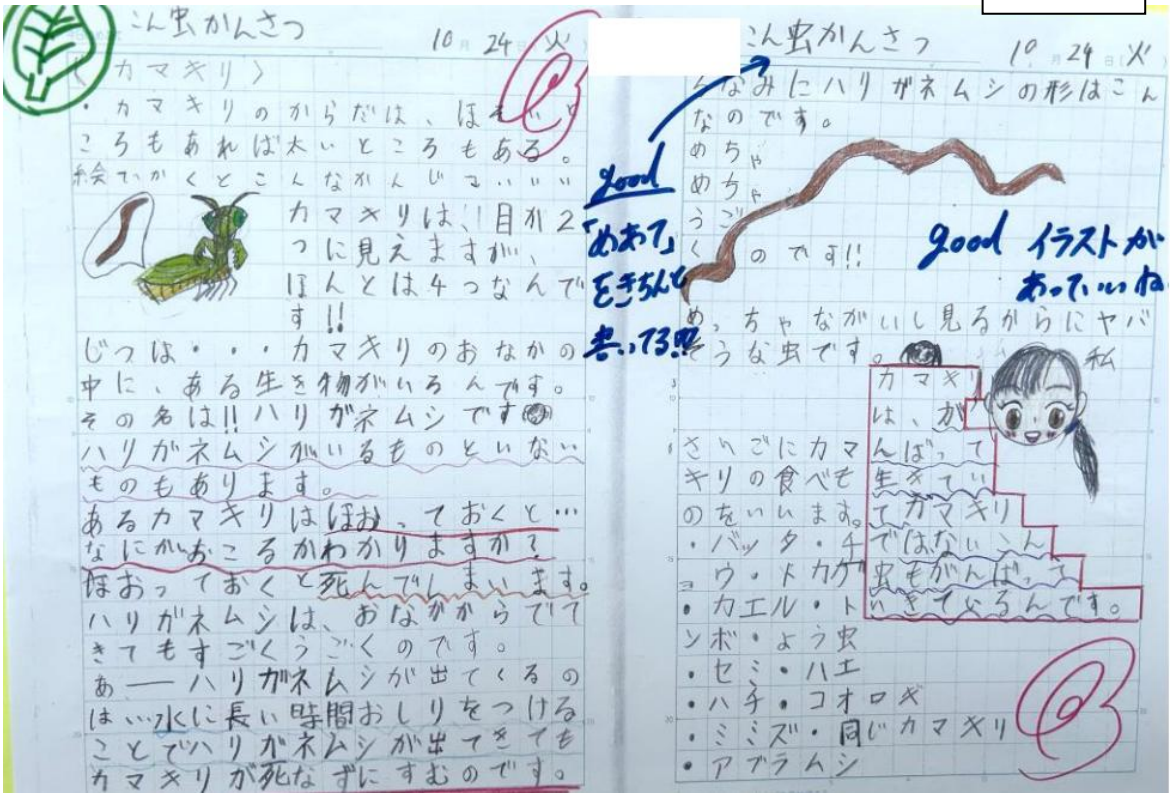 こん虫かんさつ
10月24日(火)
〈カマキリ〉
・カマキリのからだは、ほそいと
ころもあれば太いところもある。
絵でかくとこんなかんじで‥‥‥
カマキリは、目が2
つに見えますが、
ほんとは4つなんで
す!!
じつは・・・カマキリのおなかの
中に、ある生き物がいるんです。
その名は!!ハリガネムシです
ハリガネムシがいるものといない
ものもあります。
あるカマキリはほおっておくと…
なにがおこるかわかりますか?
ほおっておくと死んでしまいます。
ハリガネムシは、おなかからでて
きてもすごくうごくのです。
あ―ハリガネムシが出てくるの
は…水に長い時間おしりをつける
ことでハリガネムシが出てきても
カマキリが死なずにすむのです。
good
「めあて」
をきちんと
書いてる!!!
こん虫かんさつ
10月24日(火)
ちなみにハリガネムシの形はこん
なのです。
めちゃ
めちゃ
うご
くのです!!
good イラストが
あっていいね
めっちゃながいし見るからにヤバ
そうな虫です。
私
さいごにカマ
キリの食べも
のをいいます。
・バッタ・チ
ョウ・トカゲ
・カエル・ト
ンボ・よう虫
・セミ・ハエ
・ハチ・コオロギ
・ミミズ・同じカマキリ
・アブラムシ
カマキリ
は、が
んばって
生きてい
てカマキリ
ではないこん
虫もがんばって
いきているんです。